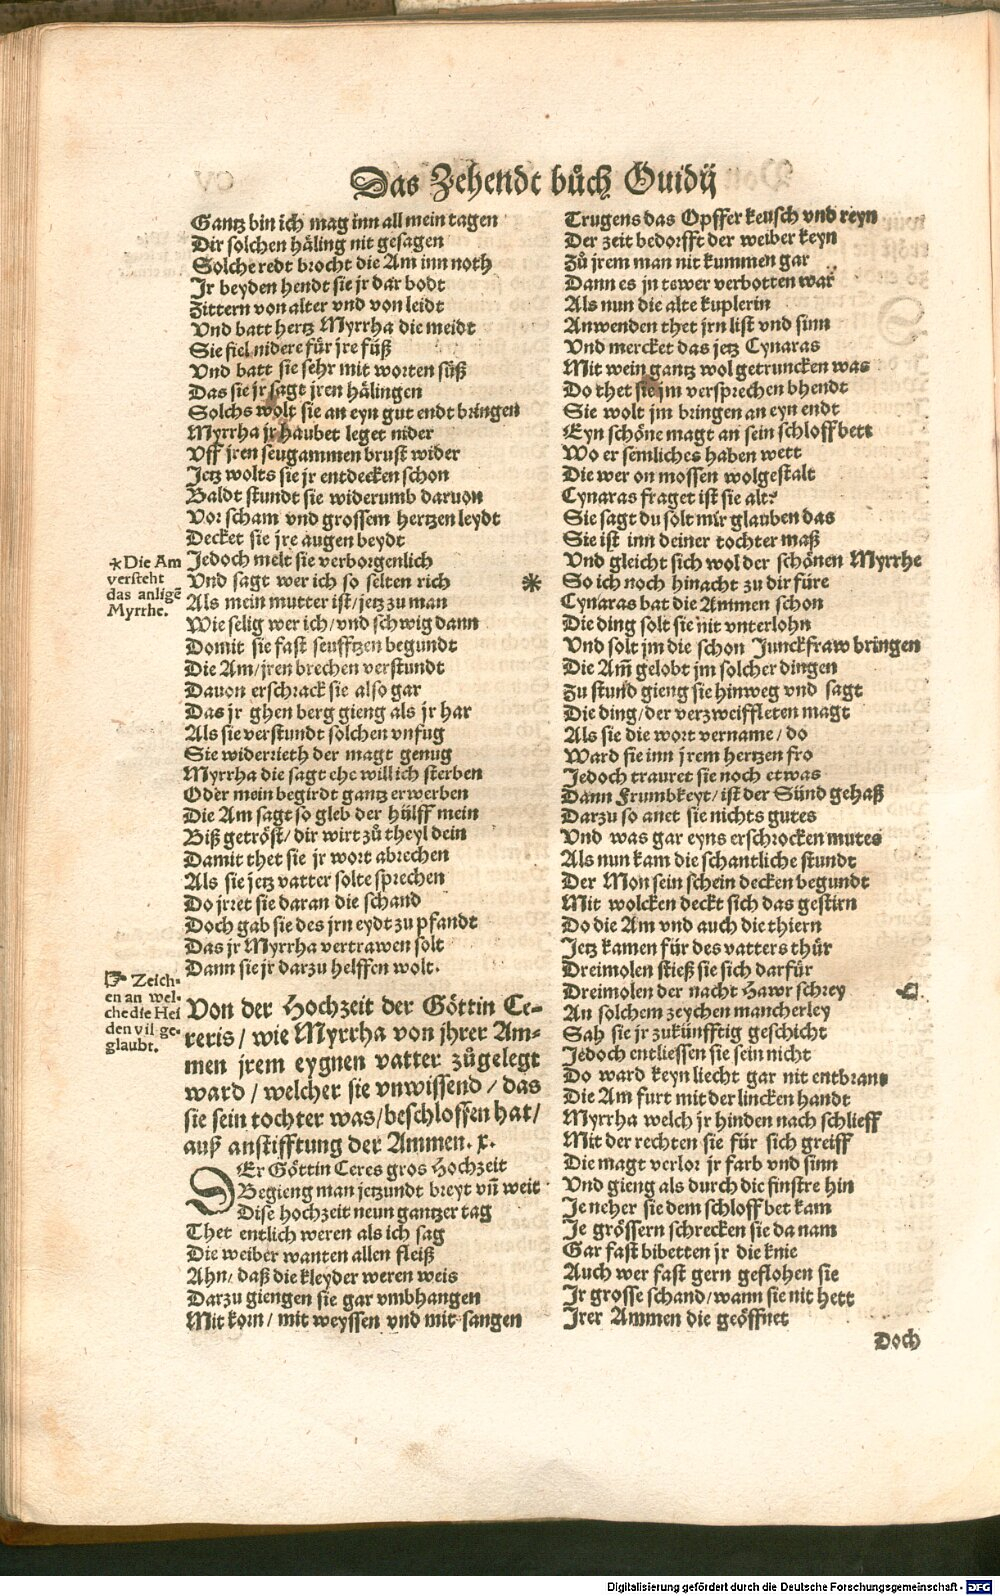 Das Zehendt bůch Ouidij
Gantz bin ich mag inn all mein tagen
Dir solchen håling nit gesagen
Solche redt brocht die Am inn noth
Jr beyden hendt sie jr dar bodt
Zittern von alter vnd von leidt
Vnd batt hertz Myrrha die meidt
Sie fiel nidere für jre füß
Vnd batt sie sehr mit worten süß
Das sie jr sagt jren hålingen
Solchs wolt sie an eyn gut endt bringen
Myrrha jr haubet leget nider
Vff jren seugammen brust wider
Jetz wolts sie jr entdecken schon
Baldt stundt sie widerumb daruon
Vor scham vnd grossem hertzen leydt
Decket sie jre augen beydt
Jedoch melt sie verborgenlich
Vnd sagt wer ich so selten rich
Als mein mutter ist/ jetz zu man
Wie selig wer ich/ vnd schwig dann
Domit sie fast seufftzen begundt
Die Am/ jren brechen verstundt
Dauon erschrack sie also gar
Das jr ghen berg gieng als jr har
Als sie verstundt solchen vnfug
Sie widerrieth der magt genug
Myrrha die sagt ehe will ich sterben
Oder mein begirdt gantz erwerben
Die Am sagt so gleb der hülff mein
Biß getröst/ dir wirt zů theyl dein
Damit thet sie jr wort abrechen
Als sie jetz vatter solte sprechen
Do jrret sie daran die schand
Doch gab sie des jrn eydt zu pfandt
Das jr Myrrha vertrawen solt
Dann sie jr darzu helffen wolt.
*Die Am
versteht
das anligẽ
Myrrhe.
☞ Zeich-
en an wel-
che die Hei
den vil ge-
glaubt.
Von der Hochzeit der Göttin Ce-
reris/ wie Myrrha von jhrer Am-
men jrem eygnen vatter zůgelegt
ward/ welcher sie vnwissend/ das
sie sein tochter was/ beschlossen hat/
auß anstifftung der Ammen. x.
DEr Göttin Ceres gros Hochzeit
Begieng man jetzundt breyt vñ weit
Dise hochzeit neun gantzer tag
Thet entlich weren als ich sag
Die weiber wanten allen fleiß
Ahn/ daß die kleyder weren weis
Darzu giengen sie gar vmbhangen
Mit korn/ mit weyssen vnd mit sangen
Trugens das Opffer keusch vnd reyn
Der zeit bedorfft der weiber keyn
Zů jrem man nit kummen gar
Dann es jn tewer verbotten war
Als nun die alte kuplerin
Anwenden thet jrn list vnd sinn
Vnd mercket das jetz Cynaras
Mit wein gantz wol getruncken was
Do thet sie jm versprechen bhendt
Sie wolt jm bringen an eyn endt
Eyn schöne magt an sein schloffbett
Wo er semliches haben wett
Die wer on mossen wolgestalt
Cynaras fraget ist sie alt?
Sie sagt du solt mir glauben das
Sie ist inn deiner tochter maß
Vnd gleicht sich wol der schönen Myrrhe
* So ich noch hinacht zu dir füre
Cynaras bat die Ammen schon
Die ding solt sie nit vnterlohn
Vnd solt jm die schon Junckfraw bringen
Die Am̃ gelobt jm solcher dingen
Zu stund gieng sie hinweg vnd sagt
Die ding/ der verzweiffleten magt
Als sie die wort vername/ do
Ward sie inn jrem hertzen fro
Jedoch trauret sie noch etwas
Dann Frumbkeyt/ ist der Sünd gehaß
Darzu so anet sie nichts gutes
Vnd was gar eyns erschrocken mutes
Als nun kam die schantliche stundt
Der Mon sein schein decken begundt
Mit wolcken deckt sich das gestirn
Do die Am vnd auch die thiern
Jetz kamen für des vatters thür
Dreimolen stieß sie sich darfür
Dreimolen der nacht Hawr schrey ☜
An solchem zeychen mancherley
Sah sie jr zukünfftig geschicht
Jedoch entliessen sie sein nicht
Do ward keyn liecht gar nit entbrant
Die Am furt mit der lincken handt
Myrrha welch jr hinden nach schlieff
Mit der rechten sie für sich greiff
Die magt verlor jr farb vnd sinn
Vnd gieng als durch die finstre hin
Je neher sie dem schloffbet kam
Je grössern schrecken sie da nam
Gar fast bibetten jr die knie
Auch wer fast gern geflohen sie
Jr grosse schand/ wann sie nit hett
Jrer Ammen die geöffnet
Doch
Digitalisierung gefördert durch die Deutsche Forschungsgemeinschaft - DFG